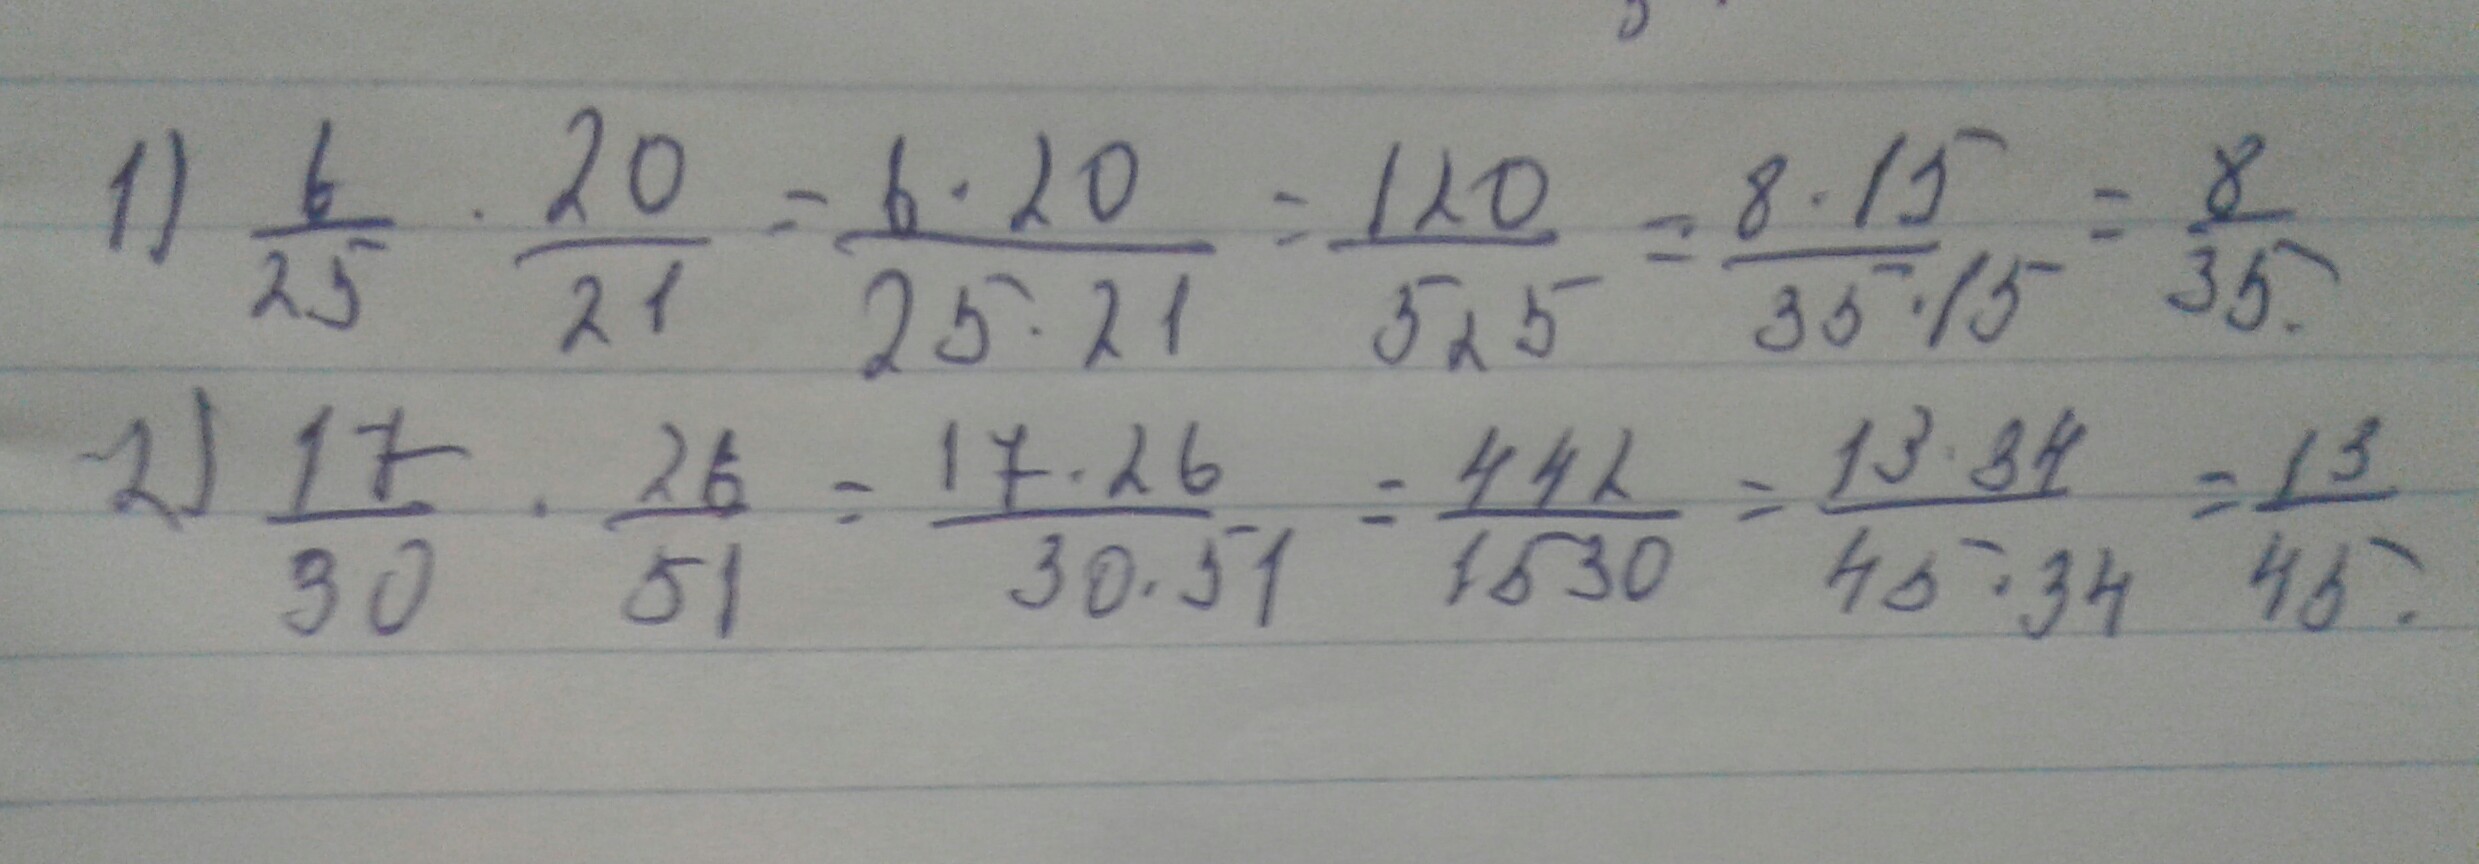 1) 6/25 · 20/21 = 6·20/25·21 = 120/525 = 8·15/35·15 = 8/35.
2) 17/30 · 26/51 = 17·26/30·51 = 442/1530 = 13·34/45·34 = 13/45.